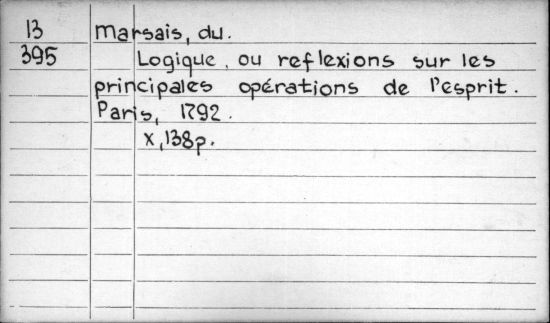 13 Marsais, du.
395 Logique, ou reflexions sur les
principales opérations de l'esprit.
Paris, 1792.
x, 138p.